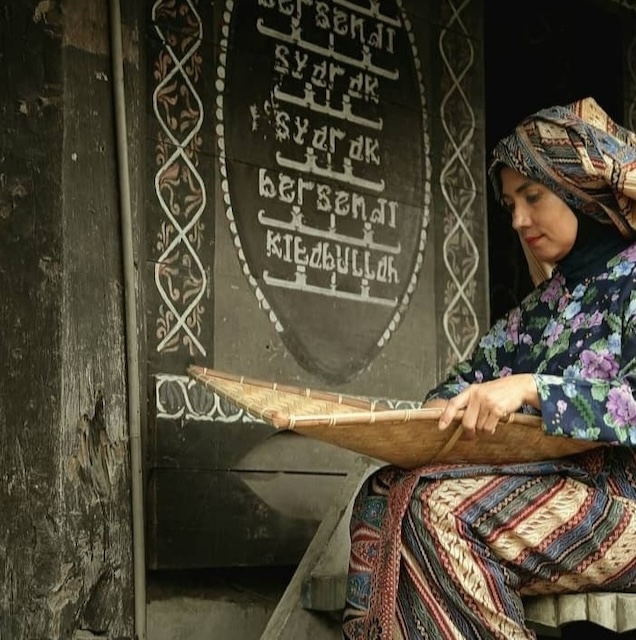 bersendi
syarak
syarak
bersendi
kitabullah